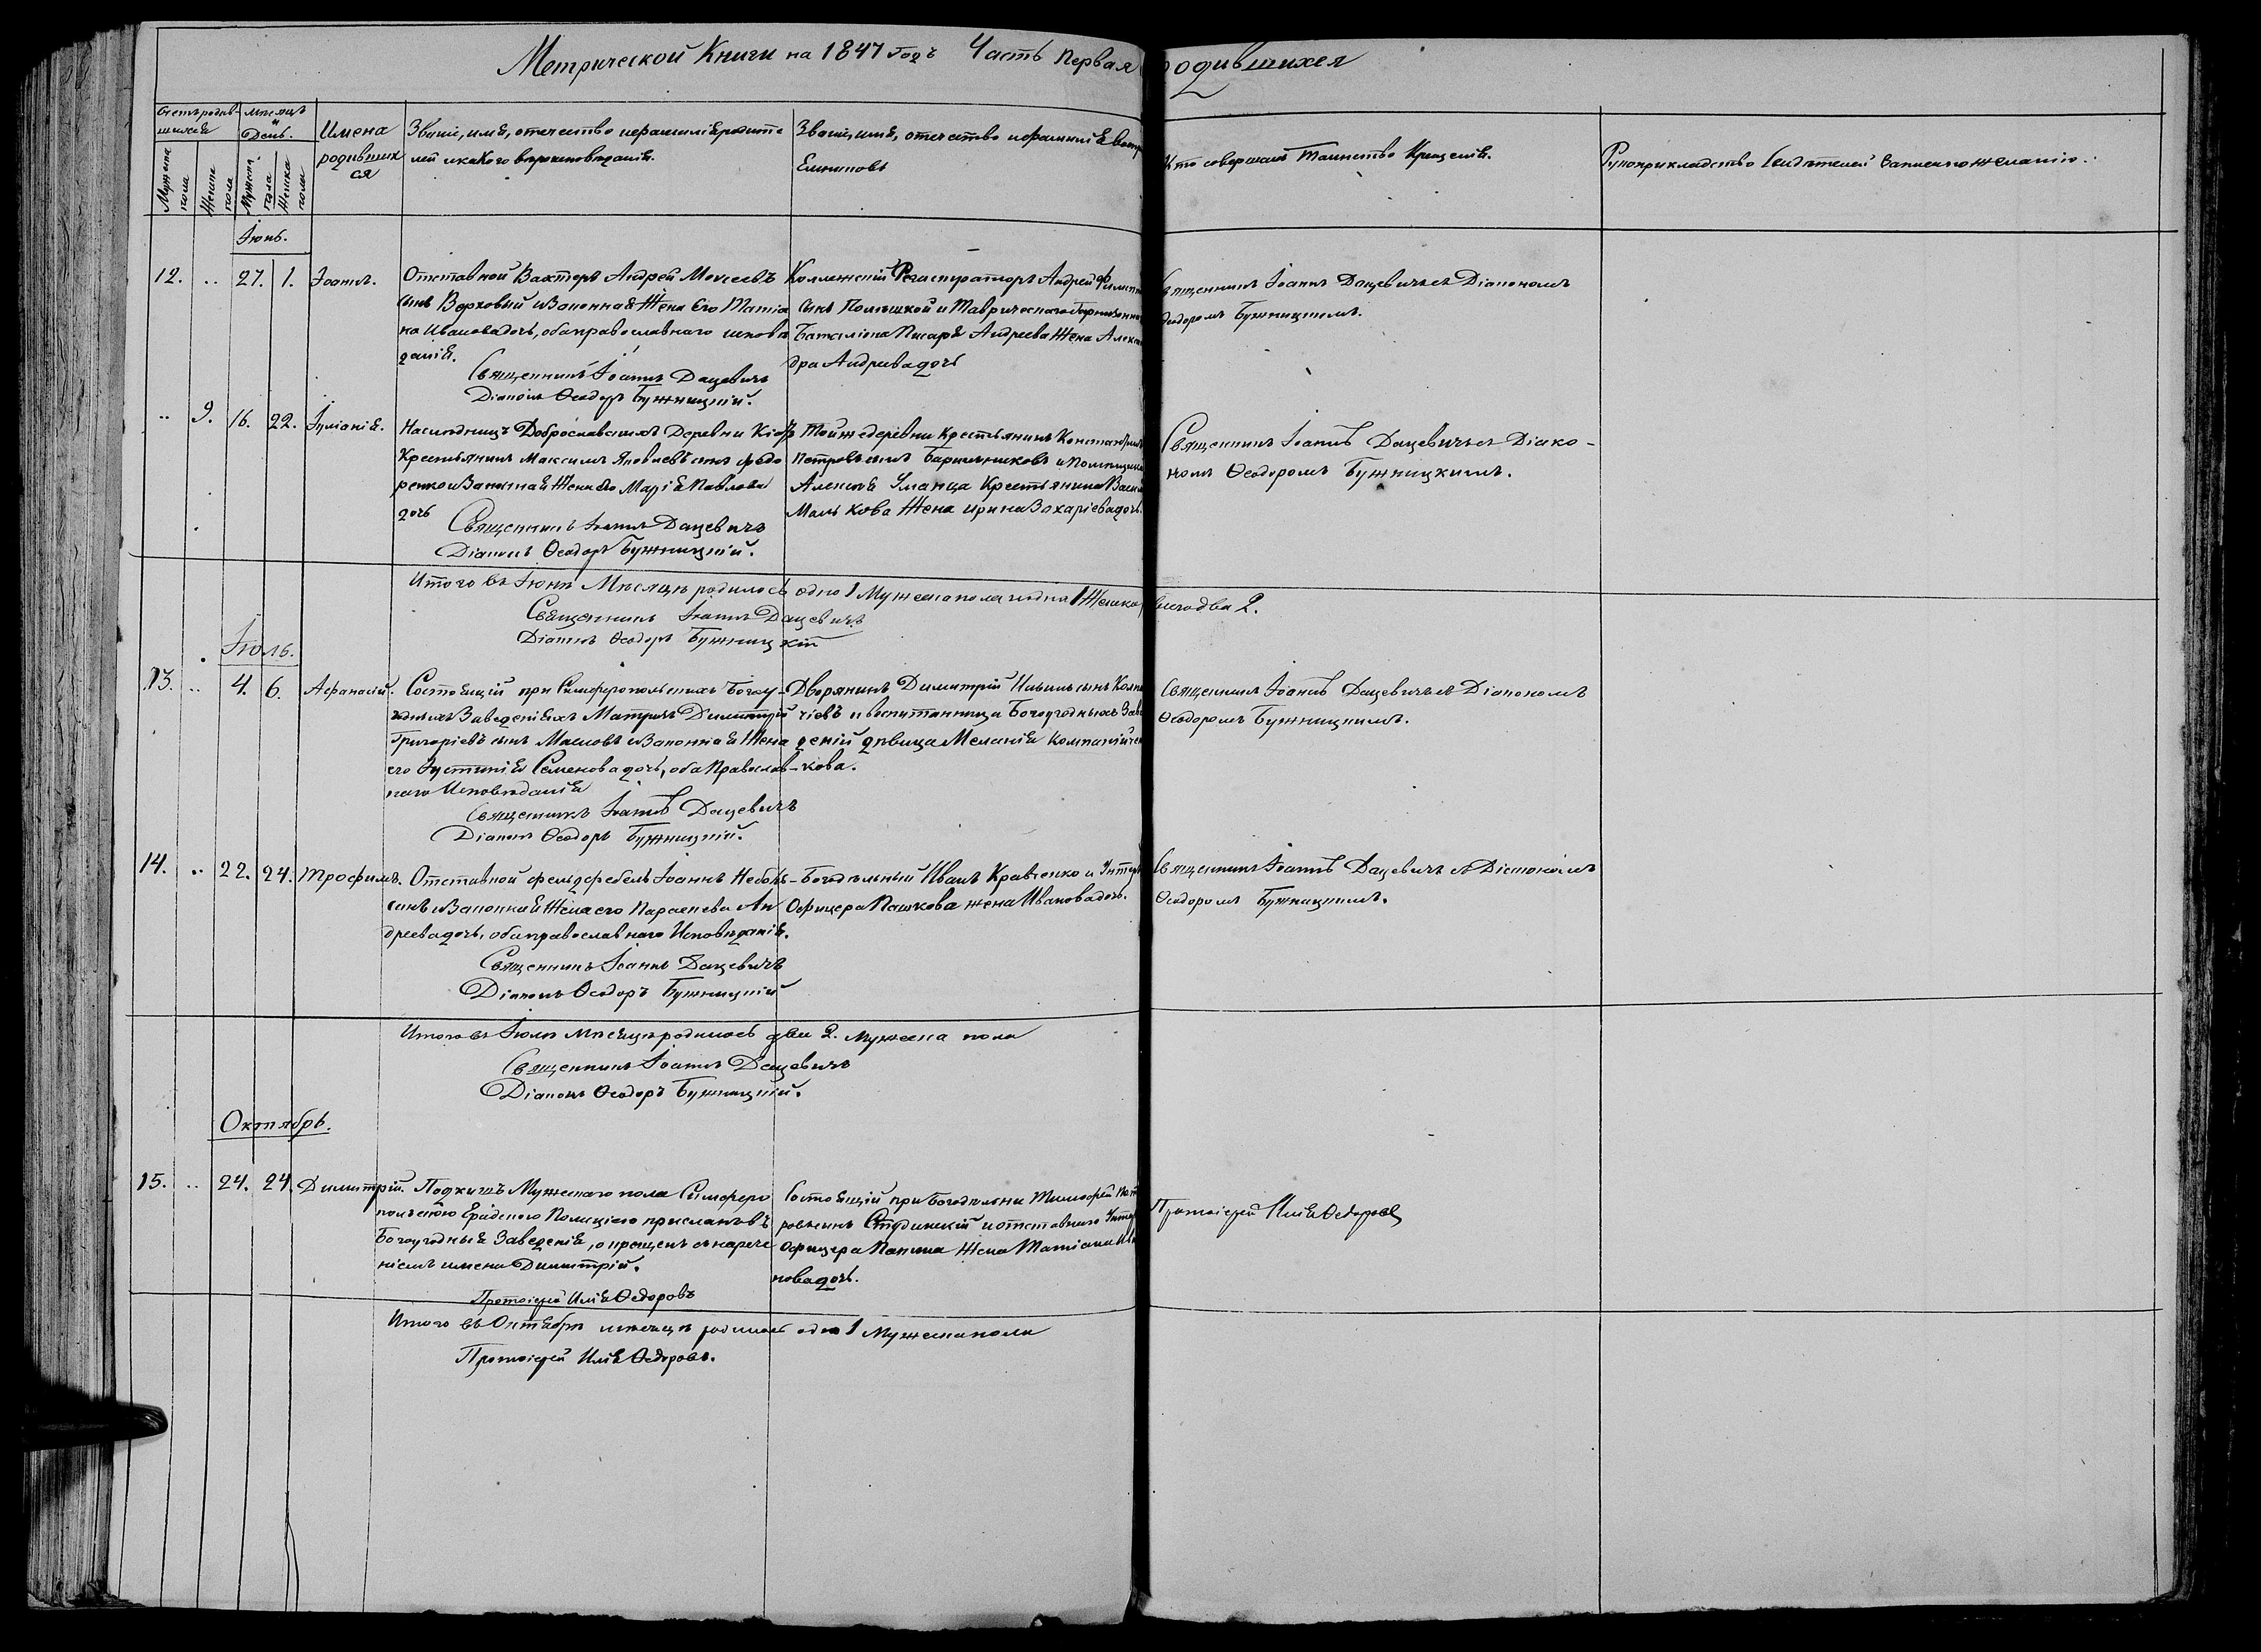 Метрической Книги на 1847 годъ Часть Первая родившихся
Счетъ родив-
шихся
Мужеска пола
Женска пола
мѣсяцъ
и
День.
Имена
родивших
ся
Званіе, имя, отечество и фамилія родите
лей и какого вѣроисповѣданія.
Званіе, имя, отечество и фамилія воспр
емниковъ
Кто совершалъ Таинство Крещенія.
Рукоприкладство Свидѣтелей записи по желанію.
Іюнь.
12. .. 27. 1. Іоаннъ.
Отставной Вахтеръ Андрей Моисеевъ
сынъ Верховый и Законная Жена Его Татіа
на Иванова дочь, оба православнаго исповѣ
данія.
Священникъ Іоаннъ Дацевичъ
Діаконъ Ѳеодоръ Бужницкій.
Коллежскій Регистраторъ Андрей
сынъ и Таврическаго Гарнизонна
Баталіона Писаря Андреева Жена Алекса
дра Андреева дочь
Священникъ Іоаннъ Дацевичъ съ Діакономъ
Ѳеодоромъ Бужницкимъ.
.. 9. 16. 22. Іуліанія.
Наслѣдницъ Доброславскихъ Деревни
Крестьянинъ Максимъ Яковлевъ сынъ Федо
ренко и Законная Жена Его Марія Павлова
дочь
Священникъ Іоаннъ Дацевичъ
Діаконъ Ѳеодоръ Бужницкій.
Той же деревни Крестьянинъ Константинъ
Петровъ сынъ Барышниковъ и Помѣщика
Алексѣя Уманца Крестьянина
Малькова Жена Ирина Захаріева дочь.
Священникъ Іоаннъ Дацевичъ съ Діако-
номъ Ѳеодоромъ Бужницкимъ.
Итого въ Іюнѣ Мѣсяцѣ родилось одно 1 Мужеска пола и одна 1 Женска, всего два 2.
Священникъ Іоаннъ Дацевичъ
Діаконъ Ѳеодоръ Бужницкій
Іюль.
13. .. 4. 6. Афанасій.
Состоящій при Симферопольскихъ Богоу-
годныхъ Заведеніяхъ Димитрій
Григоріевъ сынъ Масловъ и Законная Жена
его Іустинія Семенова дочь, оба Православ-
наго Исповѣданія
Священникъ Іоаннъ Дацевичъ
Діаконъ Ѳеодоръ Бужницкій.
Дворянинъ Димитрій Ильинъ сынъ
и воспитанница Богоугодныхъ Заве
деній дѣвица Меланія Компанійчен
кова.
Священникъ Іоаннъ Дацевичъ съ Діакономъ
Ѳеодоромъ Бужницкимъ.
14. .. 22. 24. Трофимъ.
Отставной фельдфебель Іоаннъ
сынъ и Законная Жена его Параскева Ан
дреева дочь, оба православнаго Исповѣданія.
Священникъ Іоаннъ Дацевичъ
Діаконъ Ѳеодоръ Бужницкій
Богадѣльный Иванъ Кравченко и Унтеръ
Офицера Пашкова жена Иванова дочь.
Священникъ Іоаннъ Дацевичъ съ Діакономъ
Ѳеодоромъ Бужницкимъ.
Итого въ Іюлѣ Мѣсяцѣ родилось два 2. Мужеска пола
Священникъ Іоаннъ Дацевичъ
Діаконъ Ѳеодоръ Бужницкій.
Октябрь.
15. .. 24. 24. Димитрій.
Подкишъ Мужескаго пола Симферо
польскою Градскою Полиціею присланъ въ
Богоугодныя Заведенія, окрещенъ съ нарече
ніемъ имени Димитрій.
Протоіерей Илія Ѳедоровъ
Состоящій при Богадѣльни Тимофей
ровъ сынъ Студинскій и отставнаго Унтеръ
Офицера Папина Жена Татіана Ива
нова дочь.
Протоіерей Илія Ѳедоровъ
Итого въ Октябрѣ мѣсяцѣ родилось одно 1 Мужеска пола
Протоіерей Илія Ѳедоровъ.